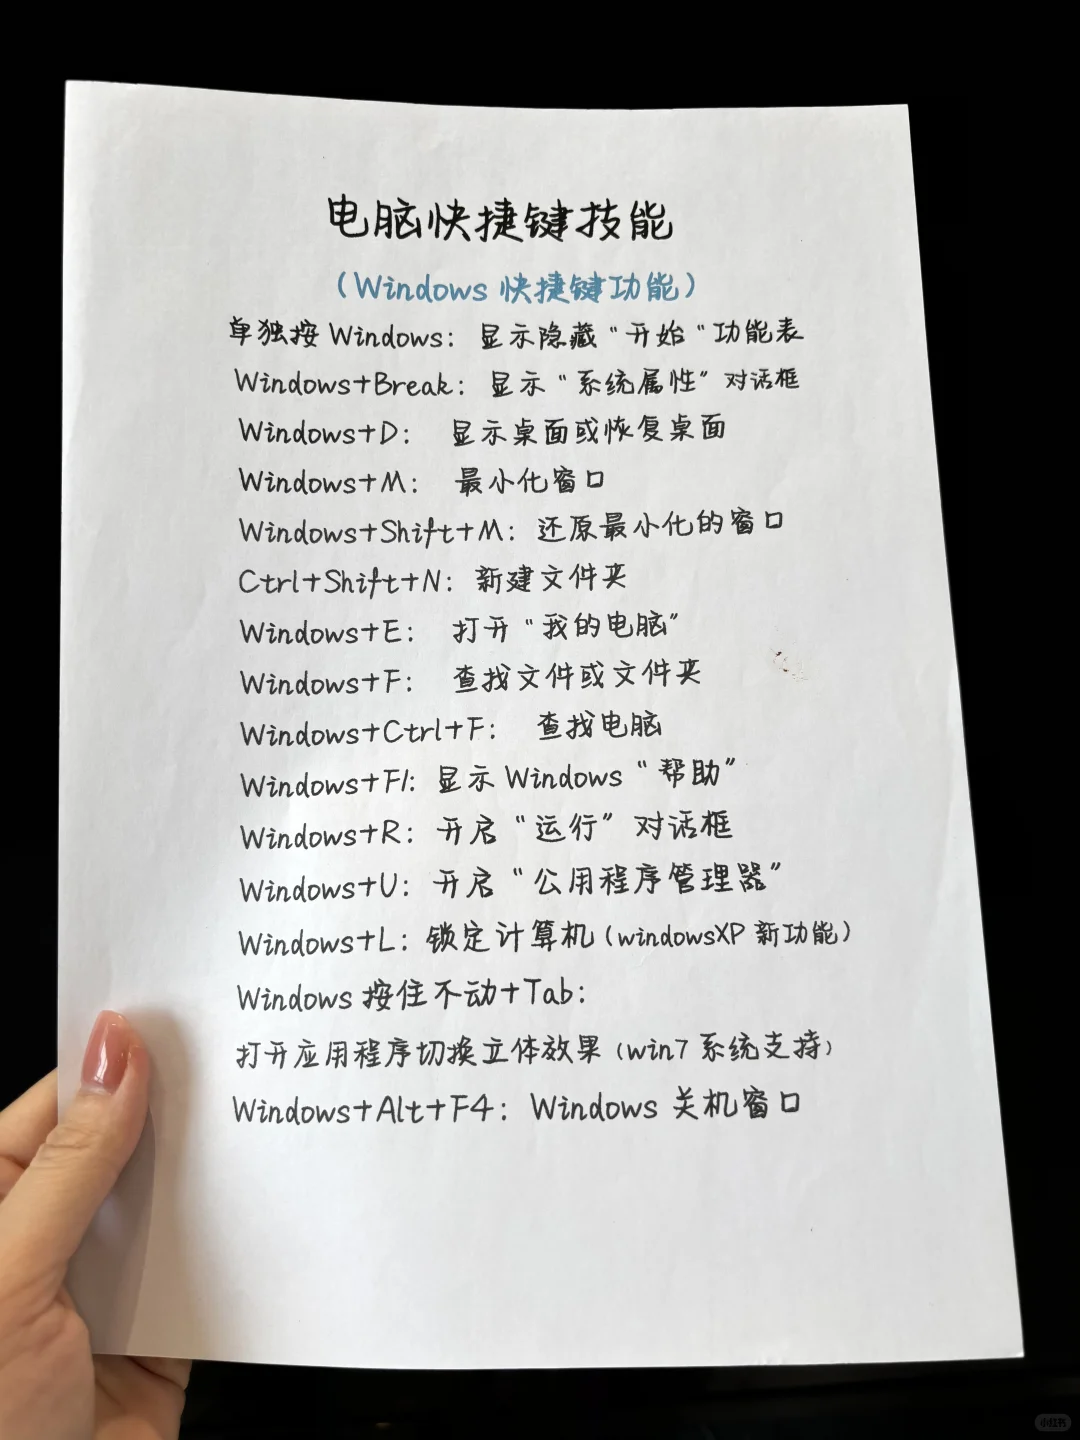 电脑快捷键技能
（Windows 快捷键功能）
单独按 Windows： 显示隐藏“开始“功能表
Windows+Break： 显示“系统属性”对话框
Windows+D： 显示桌面或恢复桌面
Windows+M： 最小化窗口
Windows+Shift+M：还原最小化的窗口
Ctrl+Shift+N：新建文件夹
Windows+E： 打开“我的电脑”
Windows+F： 查找文件或文件夹
Windows+Ctrl+F： 查找电脑
Windows+F1：显示 Windows“帮助”
Windows+R：开启“运行”对话框
Windows+U：开启“公用程序管理器”
Windows+L：锁定计算机（windowsXP 新功能）
Windows 按住不动+Tab：
打开应用程序切换立体效果（win7 系统支持）
Windows+Alt+F4：Windows 关机窗口
小红书